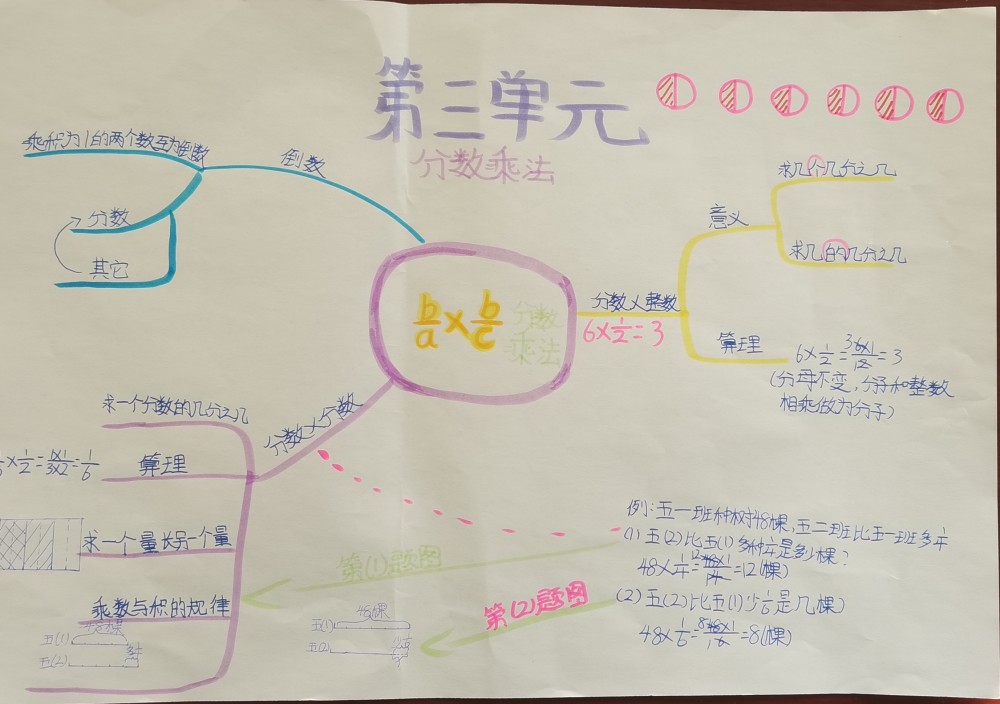 第三单元
分数乘法
倒数
乘积为1的两个数互为倒数
分数
其它
b/a × b/c
分数
乘法
分数×整数
6×1/2=3
意义
求几个几分之几
求几的几分之几
算理
6×1/2=3 6×1/12=3
(分母不变,分子和整数
相乘做为分子)
分数×分数
求一个分数的几分之几
算理
×1/2=1×1/3×2=1/6
求一个量长另一个量
乘数与积的规律
48棵
五(1)
五(2)
第(1)题图
第(2)题图
48棵
五(1)
五(2)
例:五一班种树48棵,五二班比五一班多
(1)五(2)比五(1)多种是多少棵?
=12(棵)
(2)五(2)比五(1)少1/6是几棵)
48×1/6=
=8(棵)